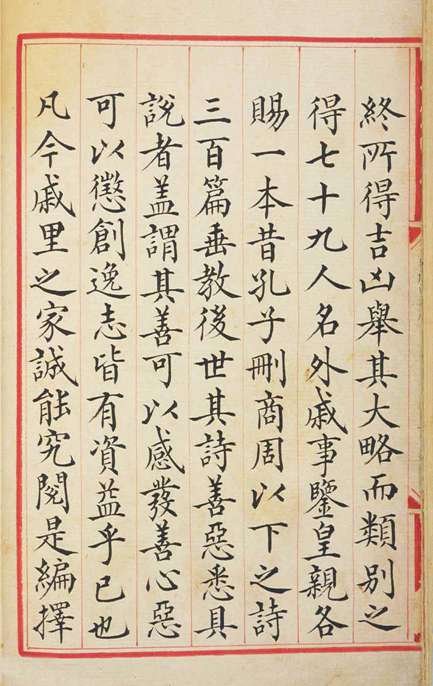 終所得吉凶舉其大略而類別之
得七十九人名外戚事鑒皇親各
賜一本昔孔子刪商周以下之詩
三百篇垂教後世其詩善惡悉具
説者盖謂其善可以感發善心惡
可以懲創逸志皆有資益乎已也
凡今戚里之家誠能究閱是編擇